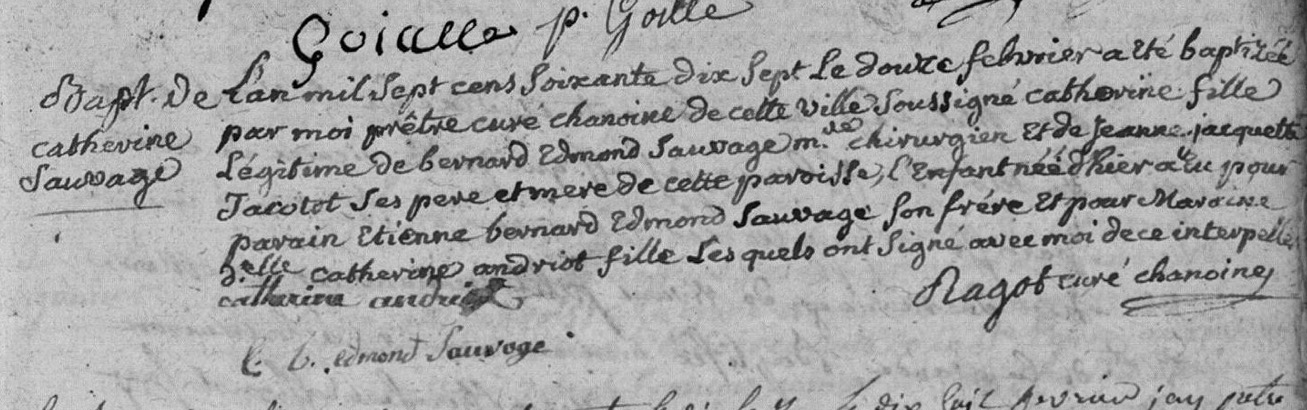 Goialle p. Goille
Bapt. de
catherine
Sauvage
L'an mil sept cens soixante dix sept le douze febvrier a été baptizée
par moi prêtre curé chanoine de cette ville soussigné catherine fille
Légitime de bernard Edmond Sauvage m.tre chirurgien et de Jeanne jacquette
Jacotot ses pere et mere de cette paroisse, l'Enfant néé d'hier a eu pour
parain Etienne bernard Edmond Sauvage son frére et pour Maraine
d.elle catherine andriot fille Les quels ont signé avec moi de ce interpellés
catherine andriot
Ragot curé chanoine
e. b. edmond Sauvage